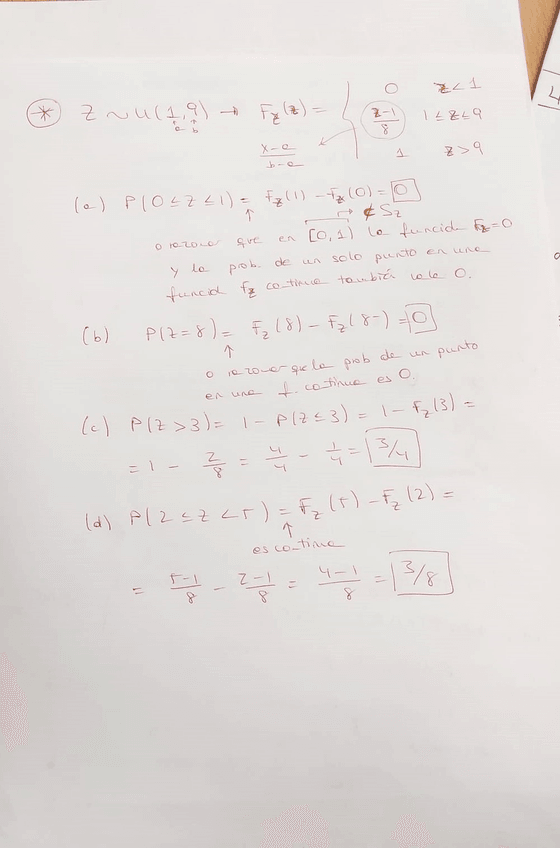 * Z ~ U(1,9) → F_Z(z) = { 0 z<1
a b
z-1/8 1≤z≤9
x-a/b-a
1 z>9
(a) P(0≤Z≤1) = F_Z(1) - F_Z(0) = 0
∉ S_Z
o razonar que en [0,1) la función F_Z=0
y la prob de un solo punto en una
función f_Z continua también vale 0.
(b) P(Z=8) = F_Z(8) - F_Z(8-) = 0
o razonar que la prob de un punto
en una f. continua es 0.
(c) P(Z>3) = 1 - P(Z≤3) = 1 - F_Z(3) =
= 1 - 2/8 = 4/4 - 1/4 = 3/4
(d) P(2≤Z<5) = F_Z(5) - F_Z(2) =
es continua
= 5-1/8 - 2-1/8 = 4-1/8 = 3/8